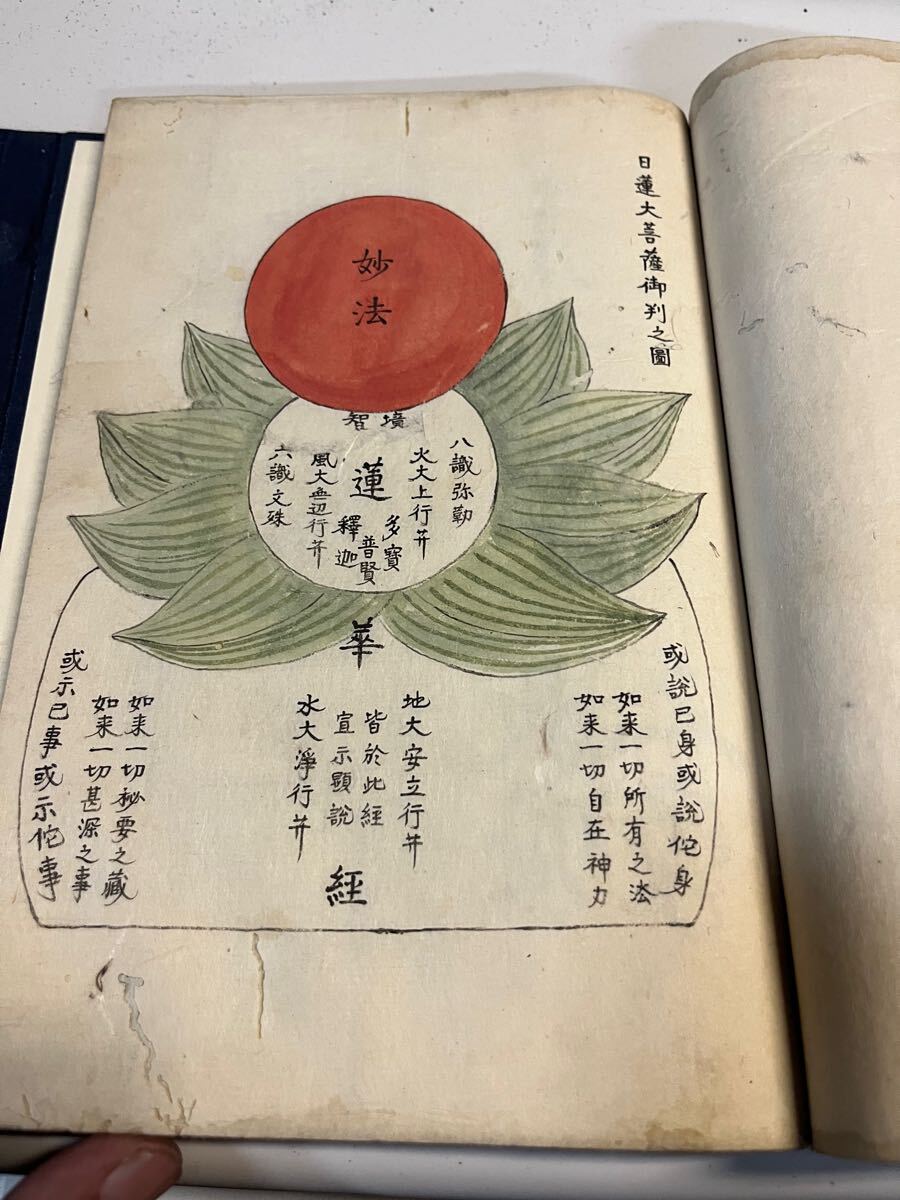 日蓮大菩薩御判之圖
妙法
智境
蓮
八識弥勒
火大上行𦬇
多寶
普賢
釋迦
風大無辺行𦬇
六識文殊
華
或說已身或說佗身
如来一切所有之法
如来一切自在神力
地大安立行𦬇
皆於此經
宣示顕說
水大淨行𦬇
如来一切秘要之藏
如来一切甚深之事
或示已事或示佗事
經